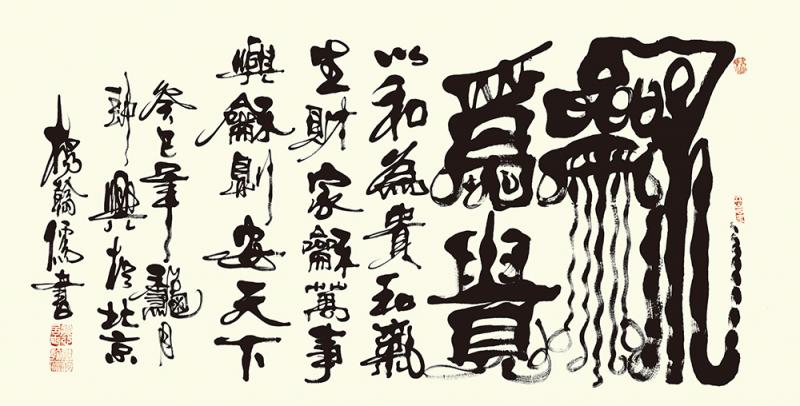 龢
爲貴
以和為貴和氣
生財家龢萬事
興龢則安天下
癸巳年月
興於北京
楊儒書